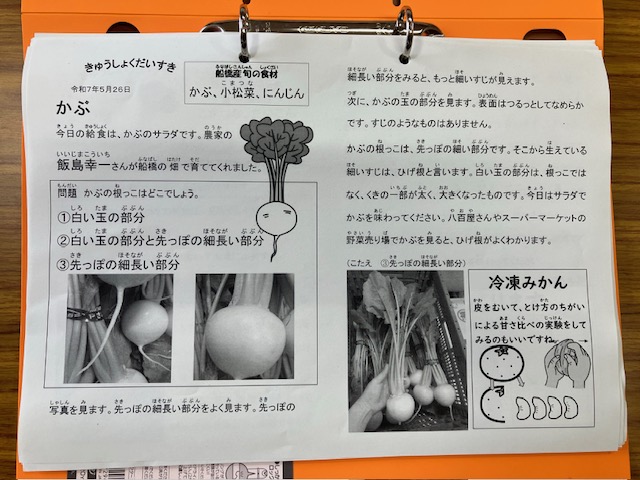 きゅうしょくだいすき
船橋産 旬の食材
かぶ、小松菜、にんじん
令和7年5月26日
かぶ
今日の給食は、かぶのサラダです。農家の
飯島幸一さんが船橋の畑で育ててくれました。
問題 かぶの根っこはどこでしょう。
①白い玉の部分
②白い玉の部分と先っぽの細長い部分
③先っぽの細長い部分
写真を見ます。先っぽの細長い部分をよく見ます。先っぽの
細長い部分をみると、もっと細いすじが見えます。
次に、かぶの玉の部分を見ます。表面はつるっとしてなめらか
です。すじのようなものはありません。
かぶの根っこは、先っぽの細い部分です。そこから生えている
細いすじは、ひげ根と言います。白い玉の部分は、根っこでは
なく、くきの一部が太く、大きくなったものです。今日はサラダで
かぶを味わってください。八百屋さんやスーパーマーケットの
野菜売り場でかぶを見ると、ひげ根がよくわかります。
(こたえ ③先っぽの細長い部分)
冷凍みかん
皮をむいて、とけ方のちがい
による甘さ比べの実験をして
みるのもいいですね。